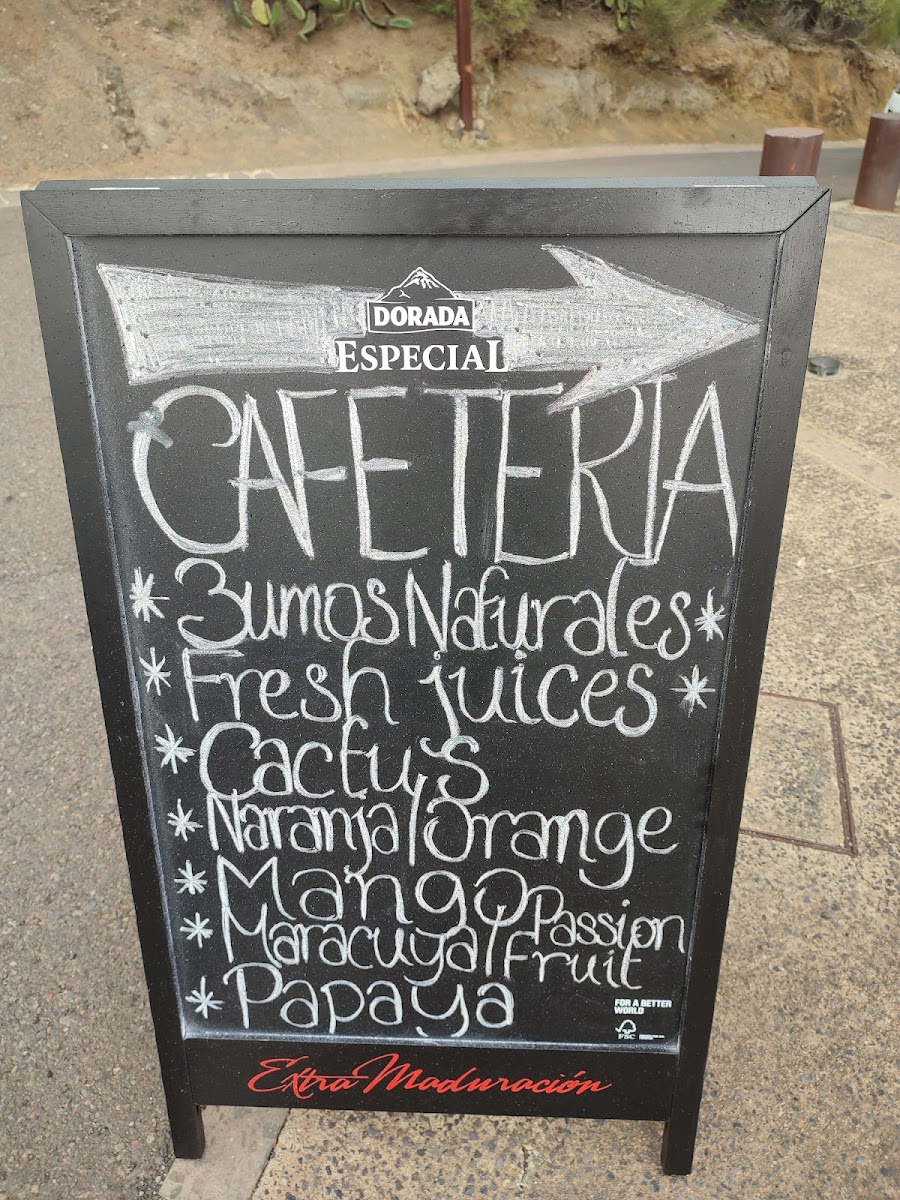 DORADA
ESPECIAL
CAFETERIA
Zumos Naturales
Fresh juices
Cactus
Naranja/Orange
Mango
Maracuya/Passion Fruit
Papaya
FOR A BETTER
WORLD
FSC
Extra Maduración